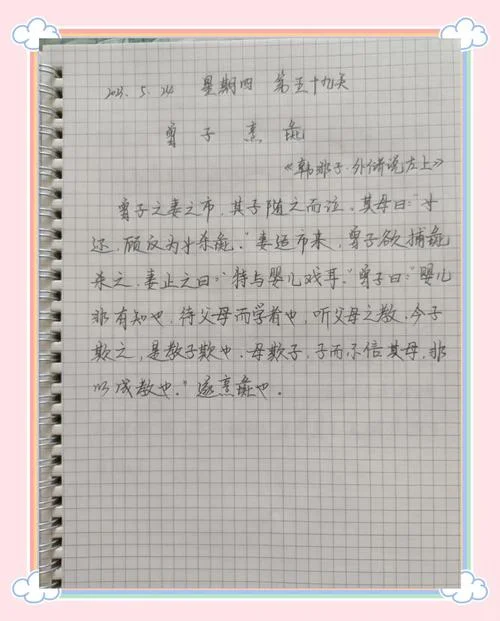 2023.5.24 星期四 第五十九天
曾子烹彘
《韩非子·外储说左上》
曾子之妻之市，其子随之而泣，其母曰："女
还，顾反为女杀彘。"妻适市来，曾子欲捕彘
杀之，妻止之曰："特与婴儿戏耳。"曾子曰："婴儿
非有知也，待父母而学者也，听父母之教，今子
欺之，是教子欺也。母欺子，子而不信其母，非
以成教也。"遂烹彘也。